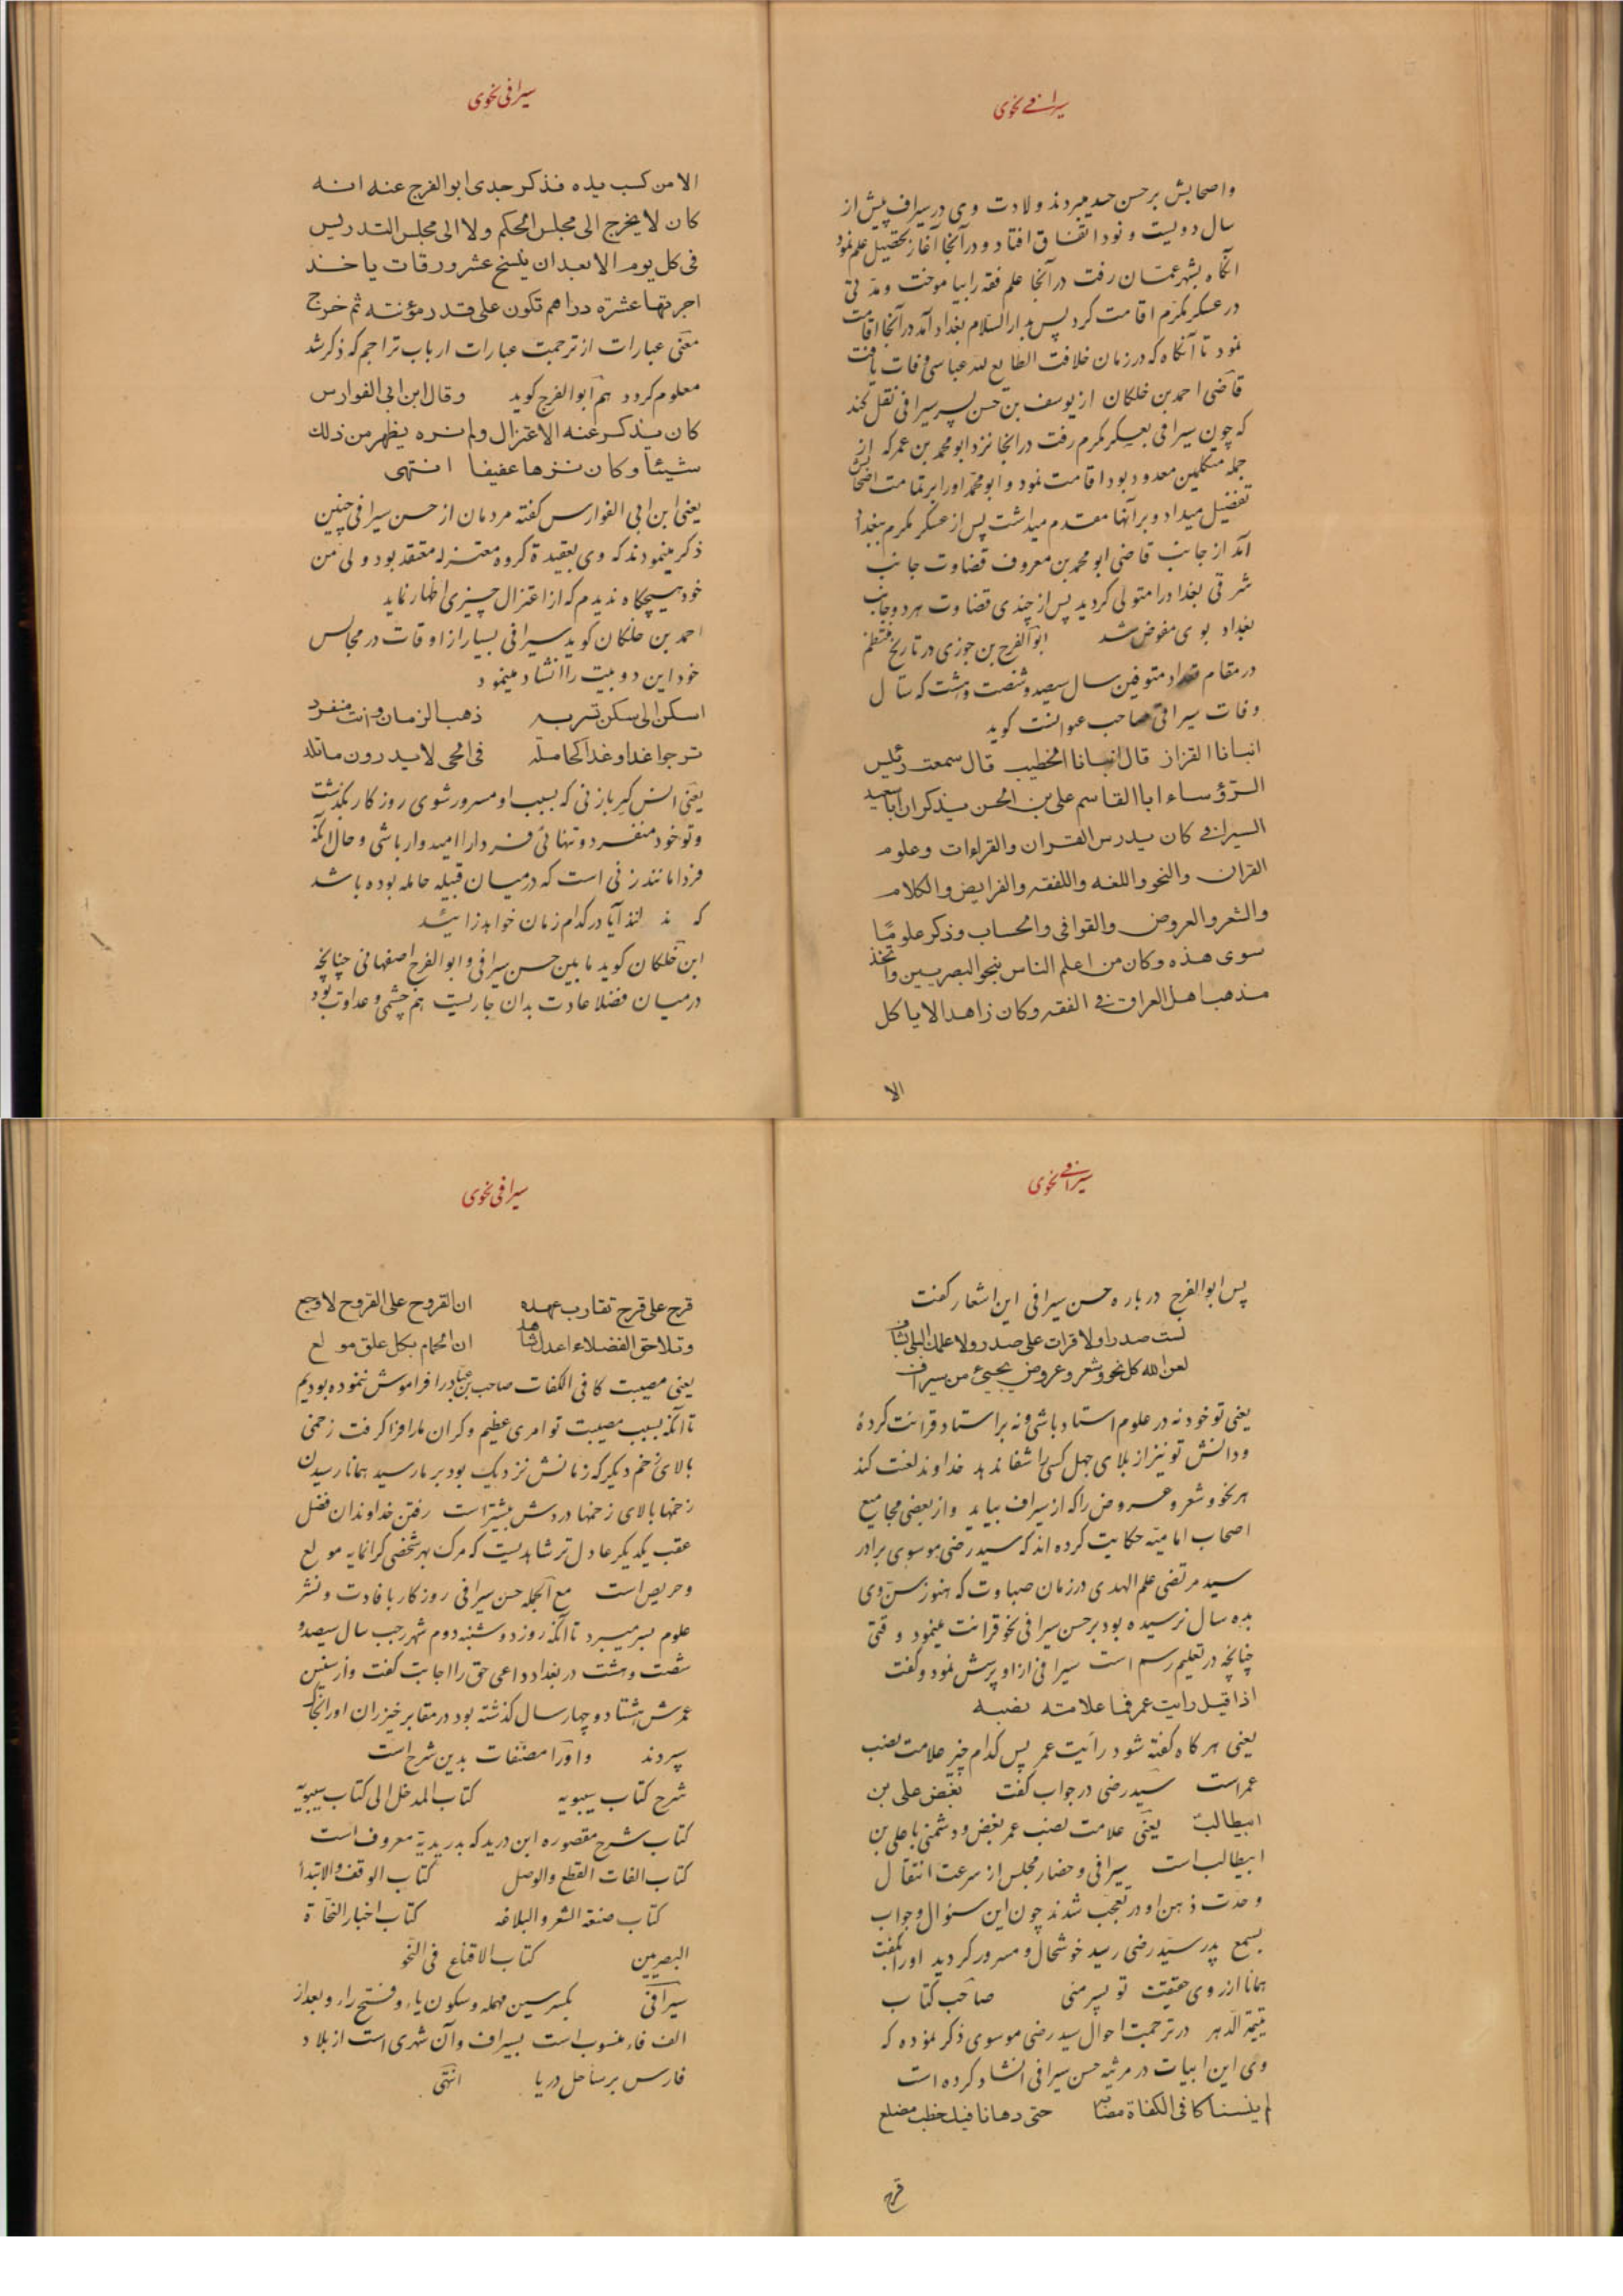 سیرافی نحوی
واصحابش بر حسن حسد میبردند ولادت وی در سیراف پیش از
سال دویست و نود اتفاق افتاد و در آنجا آغاز تحصیل علم نمود
آنگاه بشهر عمان رفت در آنجا علم فقه را بیاموخت و مدتی
در عسکر مکرم اقامت کرد پس بدار السلام بغداد آمد در آنجا اقامت
نمود تا آنگاه که در زمان خلافت الطایع لله عباسی وفات یافت
قاضی احمد بن خلکان از یوسف بن حسن پسر سیرافی نقل کند
که چون سیرافی بعسکر مکرم رفت در آنجا نزد ابو محمد بن عمر که از
جمله متکلمین معدود بود اقامت نمود و ابو محمد او را بر تمامت اصحابش
تفضیل میداد و بر آنها مقدم میداشت پس از عسکر مکرم ببغداد
آمد از جانب قاضی ابو محمد بن معروف قضاوت جانب
شرقی بغداد را متولی گردید پس از چندی قضاوت هر دو جانب
بغداد بوی مفوض شد ابو الفرج بن جوزی در تاریخ منتظم
در مقام تعداد متوفین سال سیصد و شصت و هشت که سال
وفات سیرافی صاحب عنوانست گوید
انبانا القزاز قال انبانا الخطیب قال سمعت رئیس
الرؤساء ابا القاسم علی بن الحسن یذکر ان ابا سعید
السیرافی کان یدرس القران والقراءات وعلوم
القران والنحو واللغه واللفقه والفرایض والکلام
والشعر والعروض والقوافی والحساب وذکر علوما
سوی هذه وکان من اعلم الناس بنحو البصریین واتخذ
مذهب اهل العراق فی الفقه وکان زاهدا لا یاکل
الا
سیرافی نحوی
الا من کسب یده فذکر جدی ابو الفرج عنه انه
کان لا یخرج الی مجلس الحکم ولا الی مجلس التدریس
فی کل یوم الا بعد ان ینسخ عشر ورقات یاخذ
اجرتها عشرة دراهم تکون علی قدر مؤنته ثم خرج
معنی عبارات از ترجمت عبارات ارباب تراجم که ذکر شد
معلوم گردد هم ابو الفرج گوید وقال ابن ابی الفوارس
کان یذکر عنه الاعتزال ولم نره یظهر من ذلک
شیئا وکان نزها عفیفا انتهی
یعنی ابن ابی الفوارس گفته مردمان از حسن سیرافی چنین
ذکر مینمودند که وی بعقیدة گروه معتزله معتقد بود ولی من
خود هیچگاه ندیدم که از اعتزال چیزی اظهار نماید
احمد بن خلکان گوید سیرافی بسیار از اوقات در مجالس
خود این دو بیت را انشاد مینمود
اسکن الی سکن تسر به ذهب الزمان وانت منفرد
ترجوا غدا وغدا کحامله فی الحی لا یدرون ما تلد
یعنی انس گیر با زنی که بسبب او مسرور شوی روزگار بگذشت
وتو خود منفرد و تنهائی فردا را امیدوار باشی و حال آنکه
فردا مانند زنی است که در میان قبیله حامله بوده باشد
که ند انند آیا در کدام زمان خواهد زائید
ابن خلکان گوید ما بین حسن سیرافی و ابو الفرج اصفهانی چنانچه
در میان فضلا عادت بدان جاریست هم چشمی و عداوت بود
سیرافی نحوی
پس ابو الفرج در باره حسن سیرافی این اشعار گفت
لست صدرا ولا قرات علی صدر ولا علمک البکی بشاف
لعن الله کل نحو وشعر وعروض یجیئ من سیراف
یعنی تو خود نه در علوم استاد باشی و نه بر استاد قرائت کردۀ
ودانش تو نیز از بلای جهل کسی را شفا ندهد خداوند لعنت کند
هر نحو و شعر و عروض را که از سیراف بیاید واز بعضی مجامیع
اصحاب امامیّه حکایت کرده اند که سید رضی موسوی برادر
سید مرتضی علم الهدی در زمان صباوت که هنوز سن وی
بده سال نرسیده بود بر حسن سیرافی نحو قرائت مینمود وقتی
چنانچه در تعلیم رسم است سیرافی از او پرسش نمود و گفت
اذا قیل رایت عمر فما علامته نصبه
یعنی هر گاه گفته شود رائیت عمر پس کدام چیز علامت نصب
عمر است سید رضی در جواب گفت بغض علی بن
ابیطالب یعنی علامت نصب عمر بغض و دشمنی با علی بن
ابیطالب است سیرافی و حضار مجلس از سرعت انتقال
وحدت ذهن او در تعجب شدند چون این سئوال و جواب
بسمع پدر سید رضی رسید خوشحال و مسرور گردید او را گفت
همانا از روی حقیقت تو پسر منی صاحب کتاب
یتیمة الدهر در ترجمت احوال سید رضی موسوی ذکر نموده که
وی این ابیات در مرثیه حسن سیرافی انشاد کرده است
لم ینسنا کافی الکفاة مصابه حتی دهانا فیک خطب مضلع
قرح
سیرافی نحوی
قرح علی قرح تقارب عهده ان القروح علی القروح لاوجع
وتلاحق الفضلاء اعدل شاهد ان الحمام بکل علق مولع
یعنی مصیبت کافی الکفات صاحب بن عباد را فراموش ننموده بودیم
تا آنکه بسبب مصیبت تو امری عظیم و گران ما را فرا گرفت زخمی
بالای زخم دیگر که زمانش نزدیک بود بر ما رسید همانا رسیدن
زخمها بالای زخمها دردش بیشتر است رفتن خداوندان فضل
عقب یکدیگر عادل تر شاهدیست که مرگ بهر شخصی گرانمایه مولع
وحریص است مع الجمله حسن سیرافی روزگار با فادت و نشر
علوم بسر میبرد تا آنکه روز دوشنبه دوم شهر رجب سال سیصد و
شصت و هشت در بغداد داعی حق را اجابت گفت واز سنین
عمرش هشتاد و چهار سال گذشته بود در مقابر خیزران او را بخاک
سپردند و او را مصنفات بدین شرح است
شرح کتاب سیبویه کتاب المدخل الی کتاب سیبویه
کتاب شرح مقصوره ابن درید که بدریدیة معروف است
کتاب الفات القطع والوصل کتاب الوقف والابتدا
کتاب صنعة الشعر والبلاغه کتاب اخبار النحاة
البصریین کتاب الاقناع فی النحو
سیرافی بکسر سین مهمله وسکون یاء وفتح راء وبعد از
الف فاء منسوب است بسیراف وآن شهری است از بلاد
فارس بر ساحل دریا انتهی